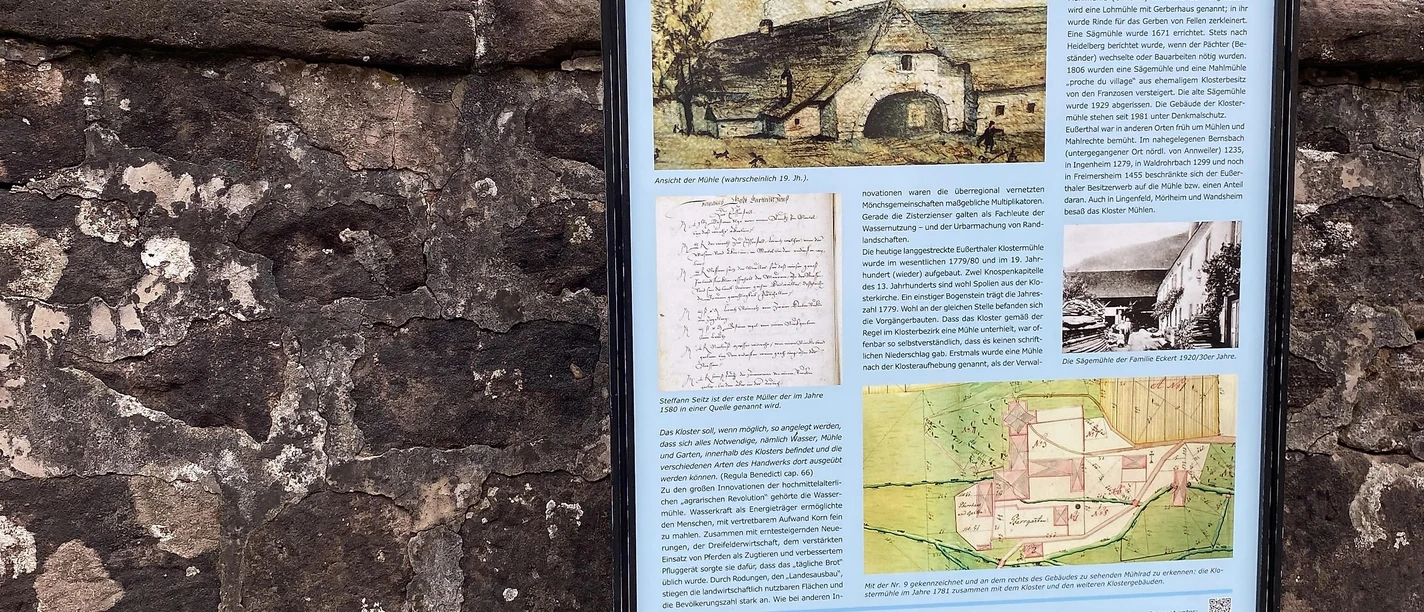 Ansicht der Mühle (wahrscheinlich 19. Jh.).
Steffann Seitz ist der erste Müller der im Jahre
1580 in einer Quelle genannt wird.
Das Kloster soll, wenn möglich, so angelegt werden,
dass sich alles Notwendige, nämlich Wasser, Mühle
und Garten, innerhalb des Klosters befindet und die
verschiedenen Arten des Handwerks dort ausgeübt
werden können. (Regula Benedicti cap. 66)
Zu den großen Innovationen der hochmittelalterli-
chen „agrarischen Revolution“ gehörte die Wasser-
mühle. Wasserkraft als Energieträger ermöglichte
den Menschen, mit vertretbarem Aufwand Korn fein
zu mahlen. Zusammen mit erntesteigernden Neue-
rungen, der Dreifelderwirtschaft, dem verstärkten
Einsatz von Pferden als Zugtieren und verbessertem
Pfluggerät sorgte sie dafür, dass das „tägliche Brot“
üblich wurde. Durch Rodungen, den „Landesausbau“,
stiegen die landwirtschaftlich nutzbaren Flächen und
die Bevölkerungszahl stark an. Wie bei anderen In-
novationen waren die überregional vernetzten
Mönchsgemeinschaften maßgebliche Multiplikatoren.
Gerade die Zisterzienser galten als Fachleute der
Wassernutzung – und der Urbarmachung von Rand-
landschaften.
Die heutige langgestreckte Eußerthaler Klostermühle
wurde im wesentlichen 1779/80 und im 19. Jahr-
hundert (wieder) aufgebaut. Zwei Knospenkapitelle
des 13. Jahrhunderts sind wohl Spolien aus der Klo-
sterkirche. Ein einstiger Bogenstein trägt die Jahres-
zahl 1779. Wohl an der gleichen Stelle befanden sich
die Vorgängerbauten. Dass das Kloster gemäß der
Regel im Klosterbezirk eine Mühle unterhielt, war of-
fenbar so selbstverständlich, dass es keinen schrift-
lichen Niederschlag gab. Erstmals wurde eine Mühle
nach der Klosteraufhebung genannt, als der Verwal-
wird eine Lohmühle mit Gerberhaus genannt; in ihr
wurde Rinde für das Gerben von Fellen zerkleinert.
Eine Sägmühle wurde 1671 errichtet. Stets nach
Heidelberg berichtet wurde, wenn der Pächter (Be-
ständer) wechselte oder Bauarbeiten nötig wurden.
1806 wurden eine Sägemühle und eine Mahlmühle
„proche du village“ aus ehemaligem Klosterbesitz
von den Franzosen versteigert. Die alte Sägemühle
wurde 1929 abgerissen. Die Gebäude der Kloster-
mühle stehen seit 1981 unter Denkmalschutz.
Eußerthal war in anderen Orten früh um Mühlen und
Mahlrechte bemüht. Im nahegelegenen Bernsbach
(untergegangener Ort nördl. von Annweiler) 1235,
in Ingenheim 1279, in Waldrohrbach 1299 und noch
in Freimersheim 1455 beschränkte sich der Eußer-
thaler Besitzerwerb auf die Mühle bzw. einen Anteil
daran. Auch in Lingenfeld, Mörlheim und Wandsheim
besaß das Kloster Mühlen.
Die Sägemühle der Familie Eckert 1920/30er Jahre.
Mit der Nr. 9 gekennzeichnet und an dem rechts des Gebäudes zu sehenden Mühlrad zu erkennen: die Klo-
stermühle im Jahre 1781 zusammen mit dem Kloster und den weiteren Klostergebäuden.